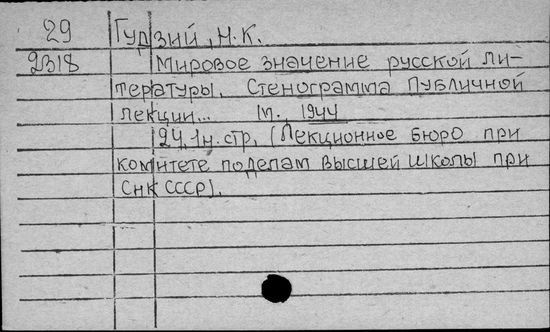 29 Гудзий, Н.К.
2318 Мировое значение русской ли-
тературы. Стенограмма публичной
лекции... М., 1944
24, 1 н. стр. (Лекционное бюро при
комитете по делам высшей школы при
СНК СССР).